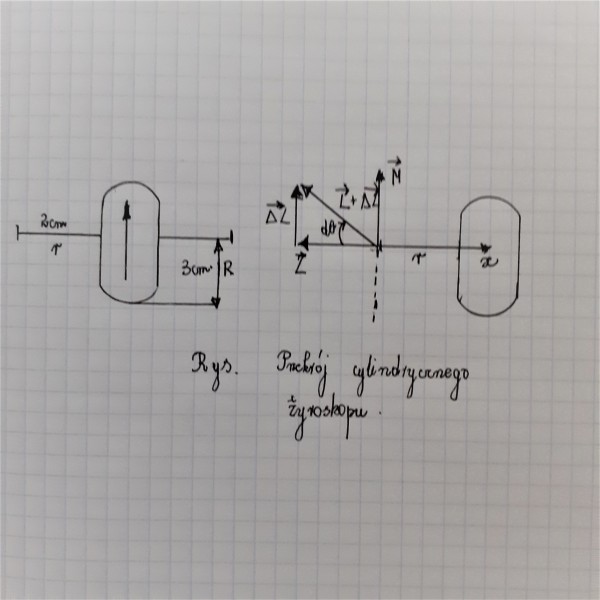 2cm
r
3cm R
ΔL⃗
L⃗
L⃗+ΔL⃗
dθ
M⃗
r
x
Rys. Przekrój cylindrycznego
żyroskopu.